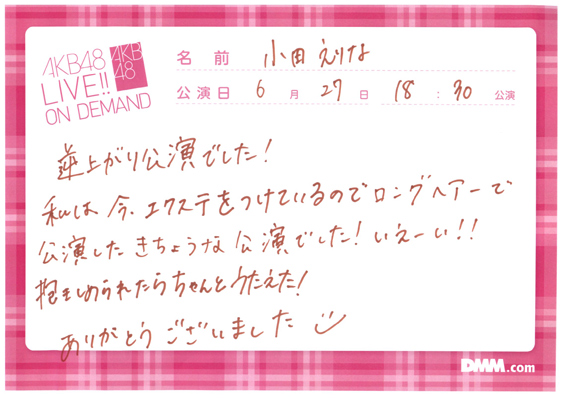 AKB48
LIVE!!
ON DEMAND
AKB
48
名前 小田えりな
公演日 6月27日 18:30公演
逆上がり公演でした!
私は今、エクステをつけているのでロングヘアーで
公演したきちょうな公演でした!いえーい!!
抱きしめられたらちゃんとうたえた!
ありがとうございました
DMM.com